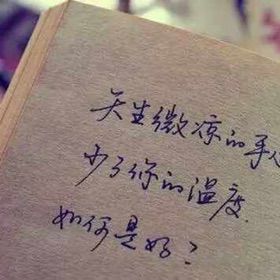 天生微凉的手
少了你的温度.
如何是好?